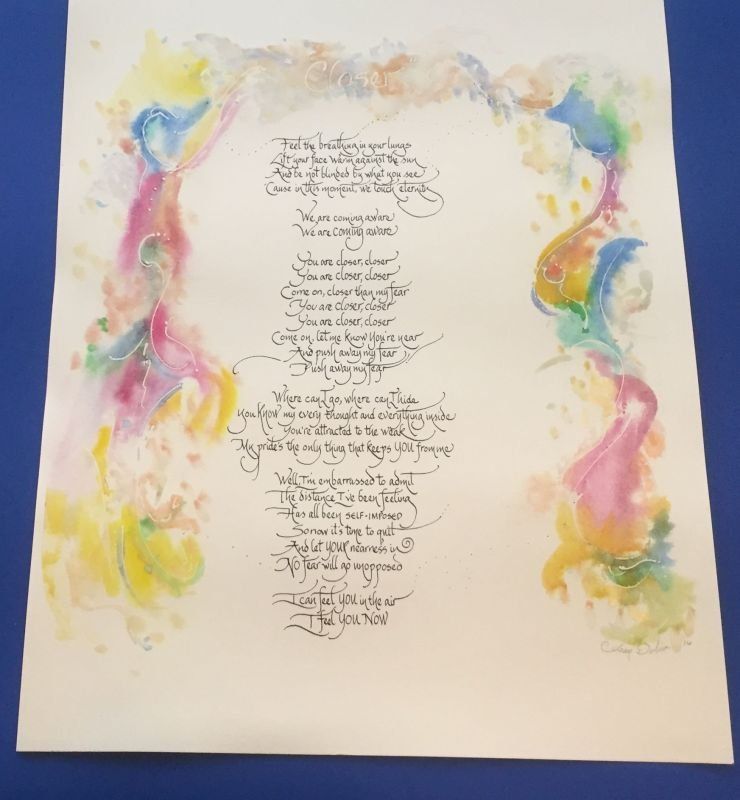 "Closer"
Feel the breathing in your lungs
Lift your face warm against the sun
And be not blinded by what you see
'Cause in this moment, we touch eternity
We are coming aware
We are coming aware
You are closer, closer
You are closer, closer
Come on, closer than my fear
You are closer, closer
You are closer, closer
Come on, let me know You're near
And push away my fear
Push away my fear
Where can I go, where can I hide
You know my every thought and everything inside
You're attracted to the weak
My pride's the only thing that keeps YOU from me
Well, I'm embarrassed to admit
The distance I've been feeling
Has all been SELF-IMPOSED
So now it's time to quit
And let YOUR nearness in
NO fear will go unopposed
I can feel YOU in the air
I feel YOU NOW